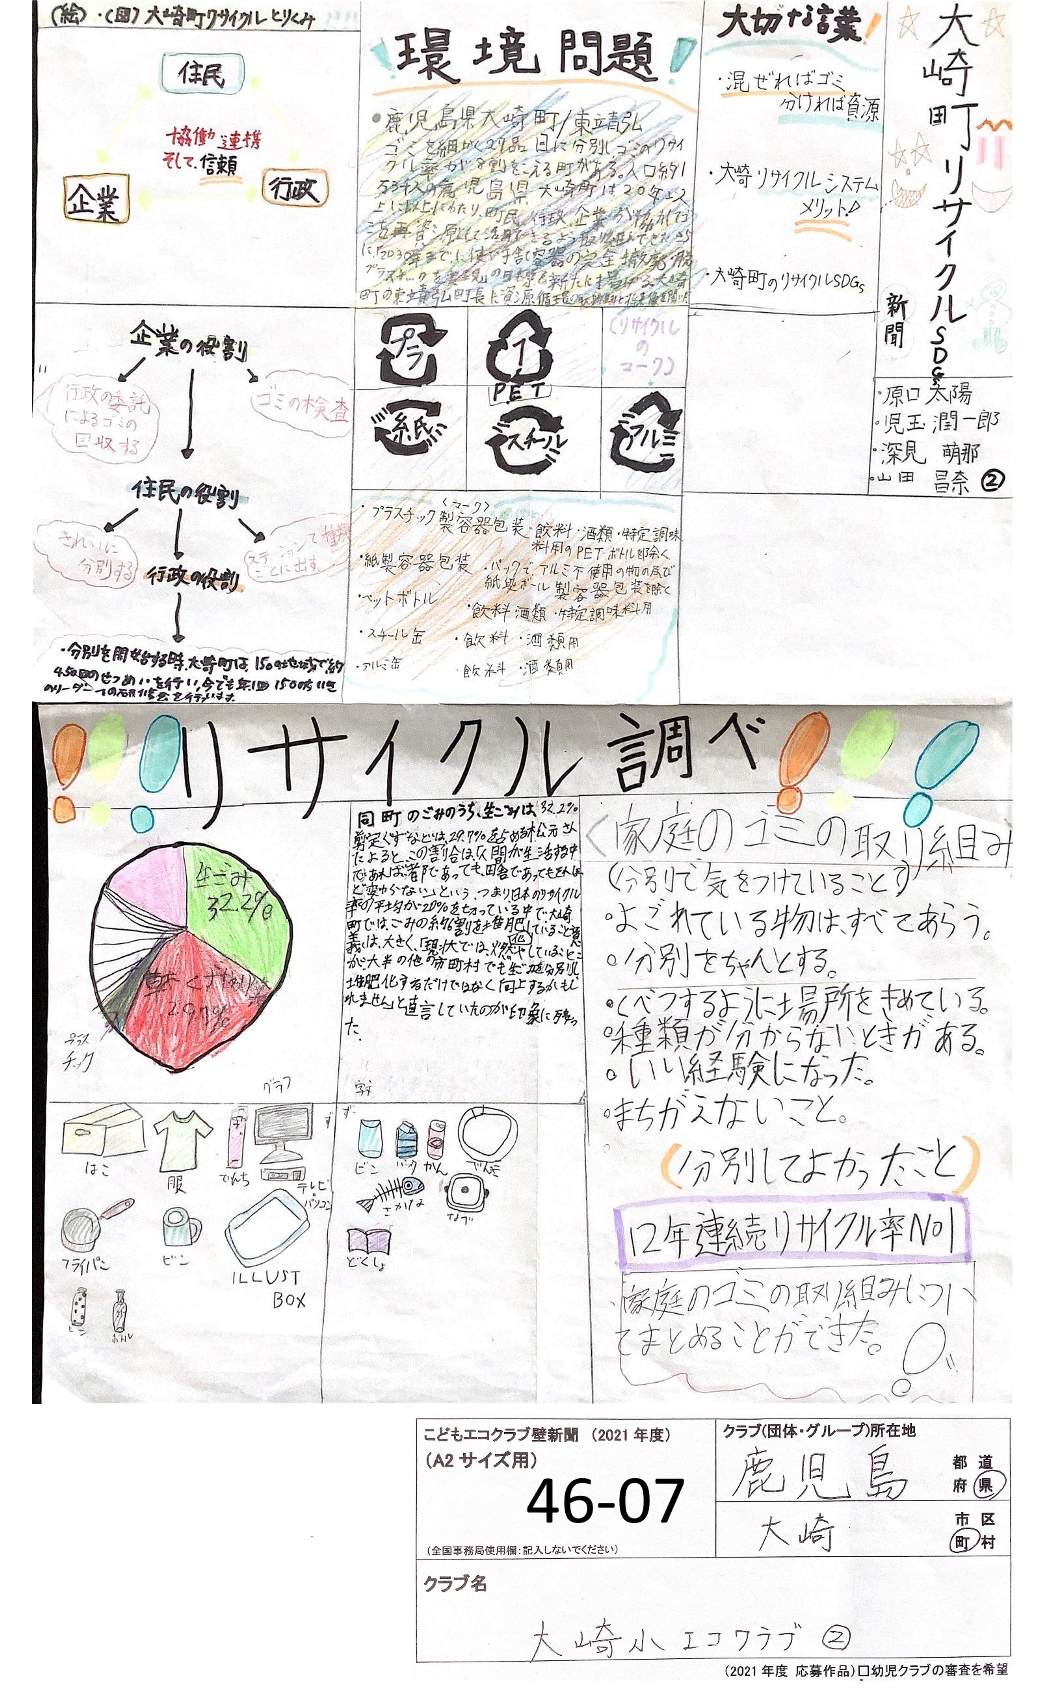 大崎町リサイクルSDGs
新聞
・原口 太陽
・児玉 潤一郎
・深見 萌那
・山田 昌奈 ②
大切な言葉!
・混ぜればゴミ
分ければ資源
・大崎リサイクルシステム
メリット!
・大崎町のリサイクルSDGs
!環境問題!
●鹿児島県大崎町/東立靖弘
ゴミを細かく27品目に分別しゴミのリサイ
クル率が8割をこえる町がある。人口約1
万3千人の鹿児島県大崎町は20年以
(絵)・(図)大崎町リサイクルとりくみ
住民
協働 連携
そして、信頼
企業
行政
企業の役割
行政の委託
によるゴミの
回収する
ゴミの検査
住民の役割
きれいに
分別する
ステーションで種類
ごとに出す
行政の役割
・分別を開始する時、大崎町は、150の地域で約
450回のせつめいを行い、今でも年1回150の
プラ
1
PET
(リサイクル
の
マーク)
紙
スチール
アルミ
〈マーク〉
・プラスチック製容器包装・飲料・酒類・特定調味
料用のPETボトル除く
・紙製容器包装・パックで、アルミ不使用の物の及び
紙段ボール製容器包装を除く
・ペットボトル・飲料 酒類・特定調味料用
・スチール缶・飲料・酒類用
・アルミ缶・飲料・酒類用
!!!リサイクル調べ!!!
生ごみ
32.2%
29.7%
プラス
チック
グラフ
同町のごみのうち、生ごみは、32.2%
剪定くずなどは、29.7%を占める。松元さん
によると、この割合は、「人間が生活する中
であれば、都市であっても、田舎であってもほとん
ど変わらない」という。つまり日本のリサイクル
率の平均が20%を切っている中で、大崎
町では、ごみの約6割を堆肥していること意
義は、大きく、「現状では、燃やしていること
が大半の他の市町村でも生ごみを分別し、
堆肥化するだけではなく向上するかもし
れません」と直言していたのが印象に残っ
た
はこ
服
でんち
テレビ・
パソコン
フライパン
ビン
ILLUST
BOX
ビン
ボトル
ビン
パック
かん
さかな
なべ
どくしょ
〈家庭のゴミの取り組み
(分別で気をつけていること)
・よごれている物はすべてあらう。
・分別をちゃんとする。
・くべつするように場所をきめている。
・種類が分からないときがある。
・いい経験になった。
・まちがえないこと。
(分別してよかったこと)
12年連続リサイクル率No1
・家庭のゴミの取り組みについ
てまとめることができた。
こどもエコクラブ壁新聞 (2021年度)
(A2サイズ用)
46-07
(全国事務局使用欄:記入しないでください)
クラブ(団体・グループ)所在地
鹿児島
都 道
府 県
大崎
市 区
町 村
クラブ名
大崎小エコクラブ②
(2021年度 応募作品)□幼児クラブの審査を希望